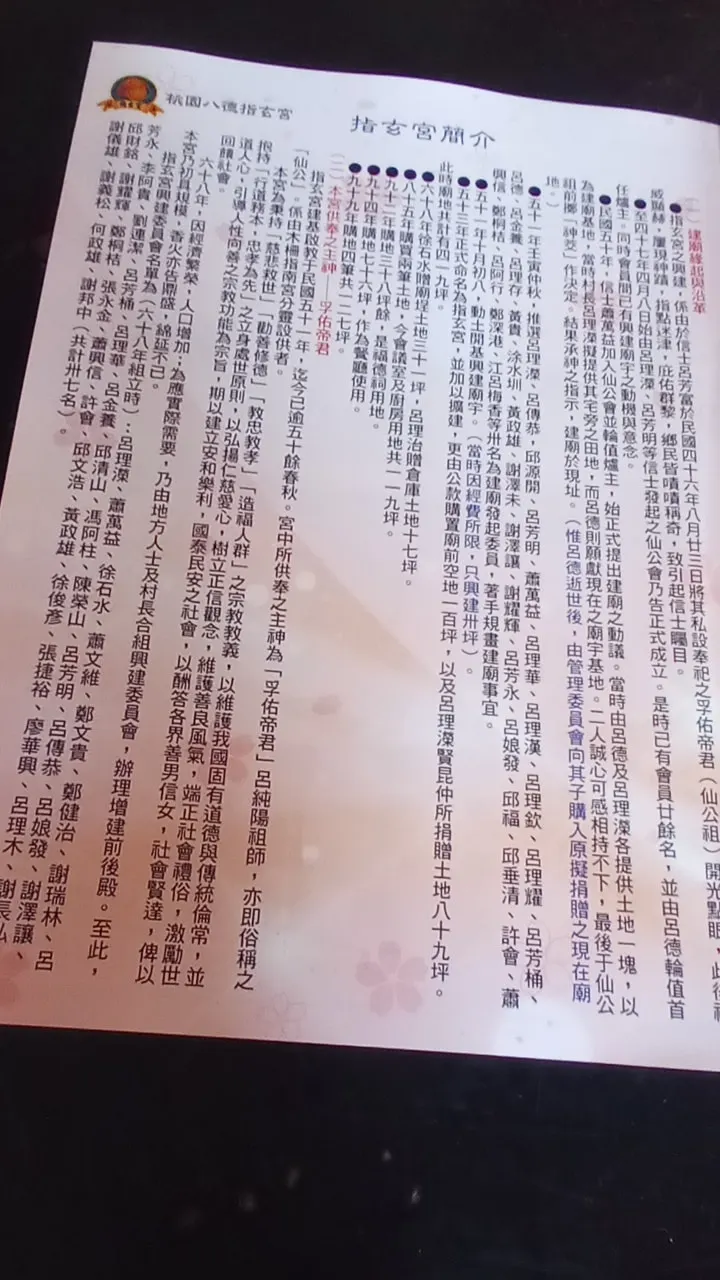 桃園八德指玄宮
指玄宮簡介
(一)建廟緣起與沿革
●指玄宮之興建，係由於信士呂芳富於民國四十六年八月廿三日將其私設奉祀之孚佑帝君（仙公祖）開光點眼，此後神
威顯赫，屢現神蹟，指點迷津，庇佑群黎，鄉民皆嘖嘖稱奇，致引起信士矚目。
●至四十七年四月八日始由呂理濚、呂芳明等信士發起之仙公會乃告正式成立。是時已有會員廿餘名，並由呂德輪值首
任爐主。同時會員間已有興建廟宇之動機與意念。
●民國五十年，信士蕭萬益加入仙公會並輪值爐主，始正式提出建廟之動議。當時由呂德及呂理濚各提供土地一塊，以
為建廟基地，當時村長呂理濚擬提供其宅旁之田地，而呂德則願獻現在之廟宇基地。二人誠心可感相持不下，最後于仙公
祖前擲「神筊」作決定。結果承神之指示，建廟於現址。（惟呂德逝世後，由管理委員會向其子購入原擬捐贈之現在廟
地。）
●五十一年壬寅仲秋，推選呂理濚、呂傳恭、邱源開、呂芳明、蕭萬益、呂理華、呂理漢、呂理欽、呂理耀、呂芳桶、
呂德、呂金養、呂理存、黃貴、涂水圳、黃政雄、謝澤未、謝澤讓、謝耀輝、呂芳永、呂娘發、邱福、邱垂清、許會、蕭
興信、鄭桐桔、呂阿行、鄭深港、江呂梅香等卅名為建廟發起委員，著手規畫建廟事宜。
●五十一年十月初八，動土開基興建廟宇。（當時因經費所限，只興建卅坪）。
●五十三年正式命名為指玄宮，並加以擴建，更由公款購置廟前空地一百坪，以及呂理濚賢昆仲所捐贈土地八十九坪。
此時廟地共計有四一九坪。
●六十八年徐石水贈廟埕土地三十一坪，呂理治贈倉庫土地十七坪。
●八十五年購買兩筆土地，今會議室及廚房用地共一一九坪。
●九十二年購地三十八坪餘，是福德祠用地。
●九十四年購地七十六坪，作為餐廳使用。
●九十九年購地四筆共一二七坪。
(二)本宮供奉之主神——孚佑帝君
指玄宮建基啟教于民國五十一年，迄今已逾五十餘春秋。宮中所供奉之主神為「孚佑帝君」呂純陽祖師，亦即俗稱之
「仙公」。係由木柵指南宮分靈設供者。
本宮為秉持「慈悲救世」「勸善修德」「教忠教孝」「造福人群」之宗教教義，以維護我國固有道德與傳統倫常，並
抱持「行道務本、忠孝為先」之立身處世原則，以弘揚仁慈愛心，樹立正信觀念，維護善良風氣，端正社會禮俗，激勵世
道人心，引導人性向善之宗教功能為宗旨，期以建立安和樂利，國泰民安之社會，以酬答各界善男信女，社會賢達，俾以
回饋社會。
六十八年，因經濟繁榮，人口增加，為應實際需要，乃由地方人士及村長合組興建委員會，辦理增建前後殿。至此，
本宮乃初具規模，香火亦告鼎盛，綿延不已。
指玄宮興建委員會名單為（六十八年組立時）：呂理濚、蕭萬益、徐石水、蕭文維、鄭文貴、鄭健治、謝瑞林、呂
芳永、李阿貴、劉連潔、呂芳桶、呂理華、呂金養、邱清山、馮阿柱、陳榮山、呂芳明、呂傳恭、呂娘發、謝澤讓、
邱財銘、謝耀輝、鄭桐桔、張永金、蕭興信、許會、邱文浩、黃政雄、徐俊彥、張捷裕、廖華興、呂理木、謝長弘
謝儀雄、謝義松、何政雄、謝邦中（共計卅七名）。